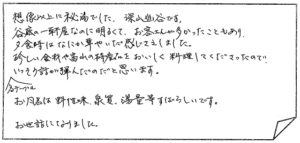 想像以上に秘湯でした。深山幽谷です。
谷底の一軒屋なのに明るくて、お客さんが多かったこともあり
夕食時はなにか華やいだ感じさえしました。
珍しい食材や高山の特産品をおいしく料理してくださったので
いっそう話が弾んだのだと思います。
各テーブル
お風呂は野性味、泉質、湯量等すばらしいです。
お世話になりました。